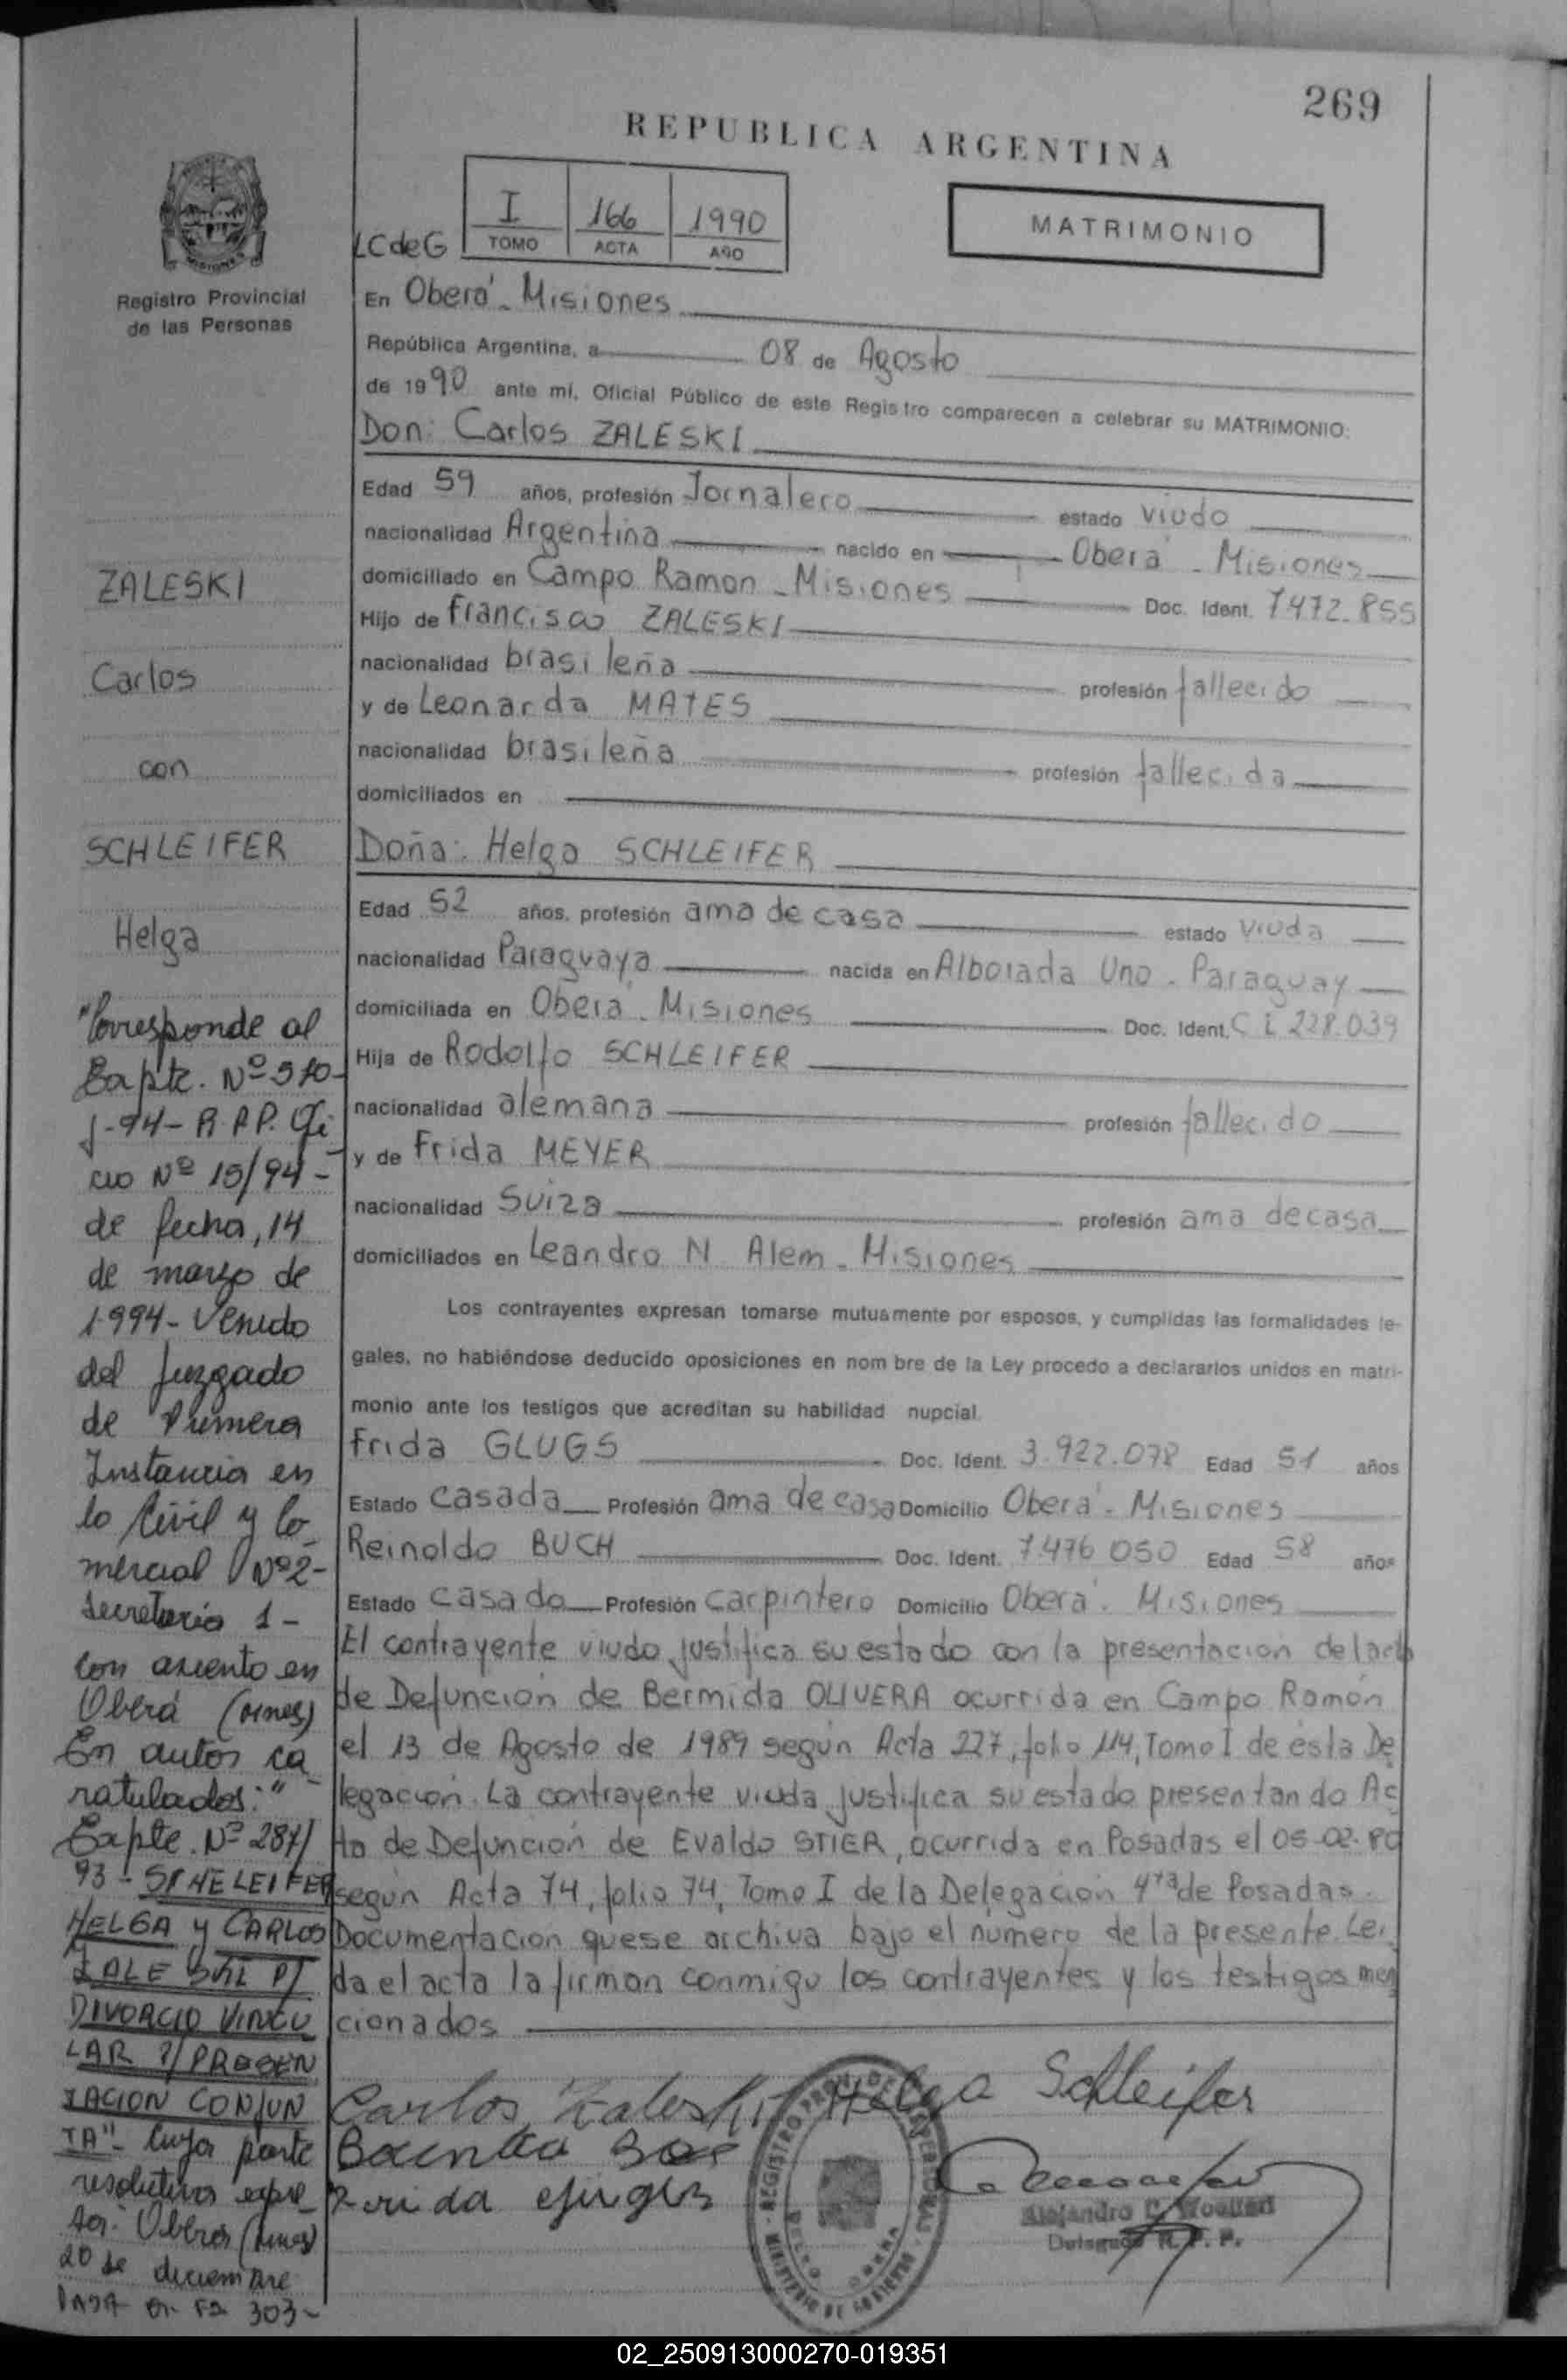 269
REPUBLICA ARGENTINA
MATRIMONIO
I 166 1990
TOMO ACTA AÑO
LCdeG
MISIONES
Registro Provincial
de las Personas
En Oberá - Misiones
República Argentina, a 08 de Agosto
de 1990 ante mí, Oficial Público de este Registro comparecen a celebrar su MATRIMONIO:
Don: Carlos ZALESKI
Edad 59 años, profesión Jornalero estado viudo
nacionalidad Argentina nacido en Oberá - Misiones
domiciliado en Campo Ramon - Misiones Doc. Ident. 7472.855
Hijo de Francisco ZALESKI
nacionalidad brasileña profesión fallecido
y de Leonarda MATES
nacionalidad brasileña profesión fallecida
domiciliados en
Doña: Helga SCHLEIFER
Edad 52 años, profesión ama de casa estado viuda
nacionalidad Paraguaya nacida en Alborada Uno - Paraguay
domiciliada en Oberá - Misiones Doc. Ident. C I 228.039
Hija de Rodolfo SCHLEIFER
nacionalidad alemana profesión fallecido
y de Frida MEYER
nacionalidad Suiza profesión ama de casa
domiciliados en Leandro N. Alem - Misiones
Los contrayentes expresan tomarse mutuamente por esposos, y cumplidas las formalidades le-
gales, no habiéndose deducido oposiciones en nom bre de la Ley procedo a declararlos unidos en matri-
monio ante los testigos que acreditan su habilidad nupcial.
Frida GLUGS Doc. Ident. 3.922.078 Edad 51 años
Estado Casada Profesión ama de casa Domicilio Oberá - Misiones
Reinoldo BUCH Doc. Ident. 7.476 050 Edad 58 años
Estado Casado Profesión Carpintero Domicilio Oberá - Misiones
El contrayente viudo, justifica su estado con la presentación del acta
de Defunción de Bermida OLIVERA ocurrida en Campo Ramón
el 13 de Agosto de 1989 según Acta 227, folio 114, Tomo I de ésta De
legación. La contrayente viuda justifica su estado presentando Ac
ta de Defunción de Evaldo STIER, ocurrida en Posadas el 05-02-80
según Acta 74, folio 74, Tomo I de la Delegación 4ta de Posadas.
Documentación que se archiva bajo el número de la presente. Leí
da el acta la firman conmigo los contrayentes y los testigos men
cionados
Carlos Zaleski Helga Schleifer
Alejandro C.
Delegado R. P. P.
ZALESKI
Carlos
con
SCHLEIFER
Helga
"Corresponde al
Expte. Nº 510-
J-94- R.P.P. Ofi
cio Nº 15/94 -
de fecha, 14
de marzo de
1.994- Venido
del Juzgado
de Primera
Instancia en
lo Civil y Co
mercial Nº2-
Secretaría 1 -
con asiento en
Oberá (Mnes)
En autos ca
ratulados:"
Expte. Nº 287/
93 - SCHELEIFER
HELGA y CARLOS
ZALESKI P/
DIVORCIO VINCU
LAR P/PRESEN
TACION CONJUN
TA"- Cuya parte
resolutiva expre
sa: Oberá (Mnes)
20 de diciembre
PASA en Fº 303-
02_250913000270-019351